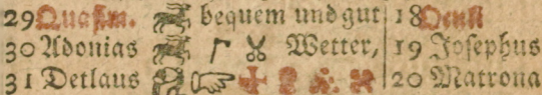 29 Quasim. bequem und gut 18 Oculi
30 Adonias Wetter, 19 Josephus
31 Detlaus 20 Matrona